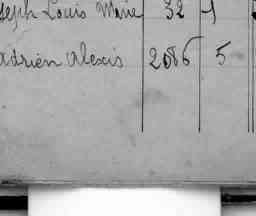 seph Louis Marie 32 1
Adrien Alexis 2086 5